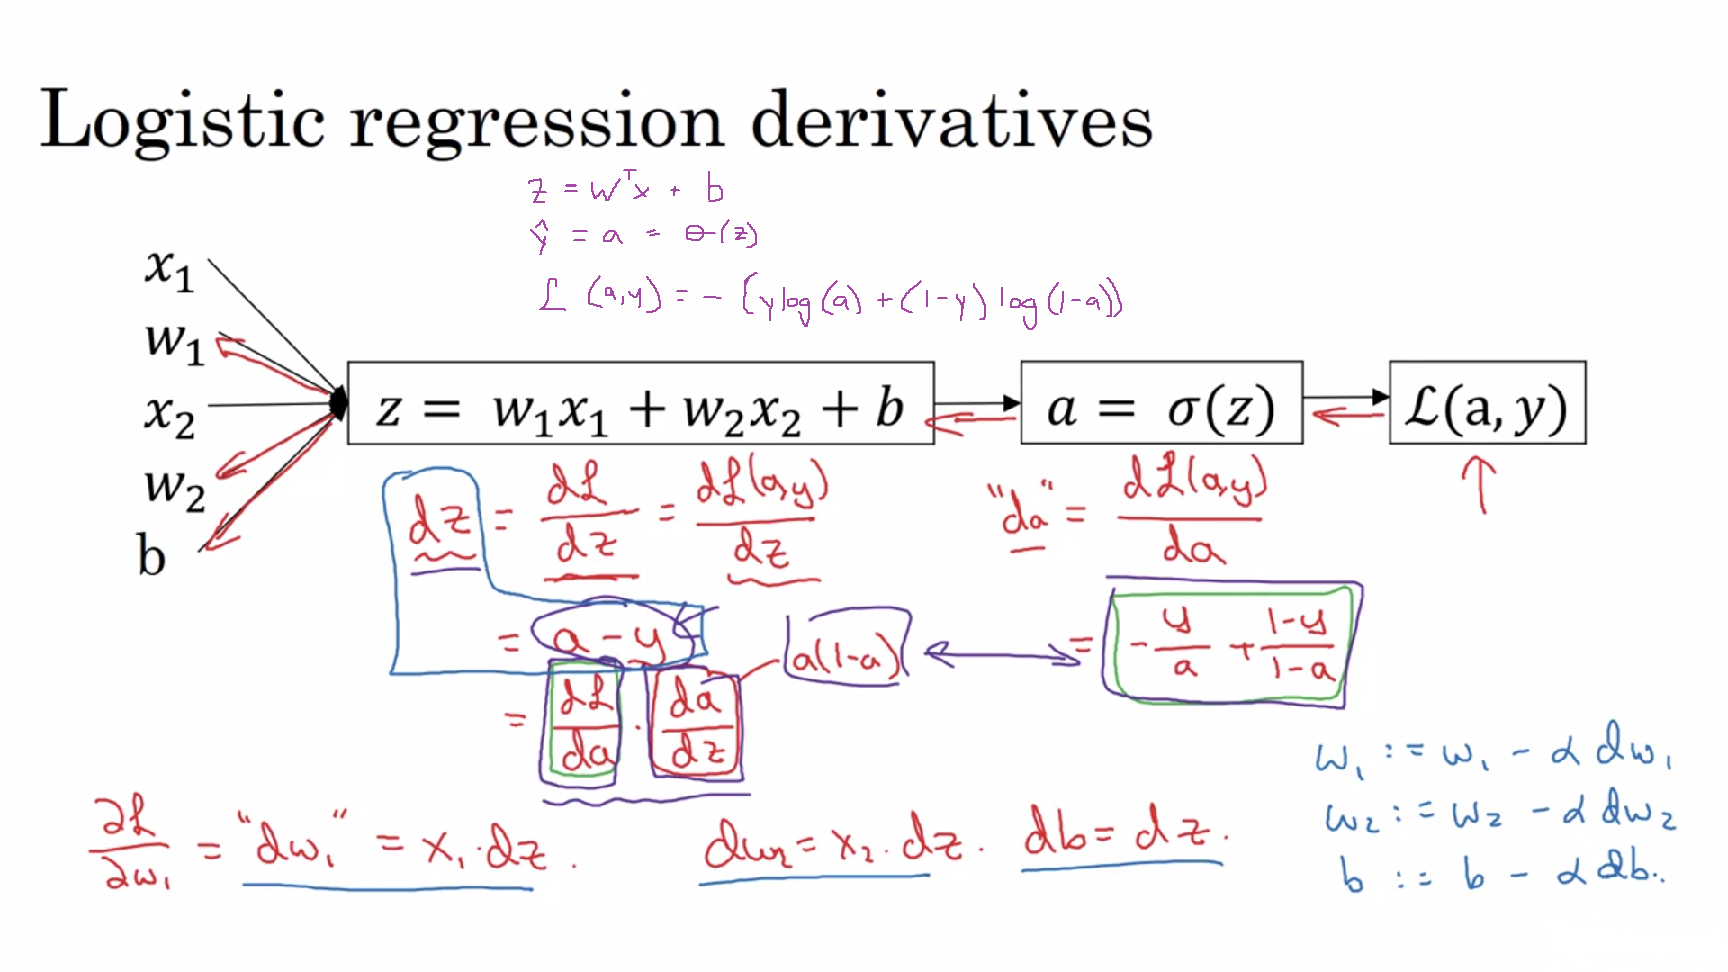 Logistic regression derivatives
z = wᵀx + b
ŷ = a = σ(z)
ℒ(a,y) = -(y log(a) + (1-y) log(1-a))
x₁
w₁
x₂
w₂
b
z = w₁x₁ + w₂x₂ + b
a = σ(z)
ℒ(a, y)
dz = dℒ/dz = dℒ(a,y)/dz
"da" = dℒ(a,y)/da
= a - y
a(1-a)
= -y/a + (1-y)/(1-a)
= dℒ/da · da/dz
∂ℒ/∂w₁ = "dw₁" = x₁·dz.
dw₂ = x₂·dz.
db = dz.
w₁ := w₁ - α dw₁
w₂ := w₂ - α dw₂
b := b - α db.